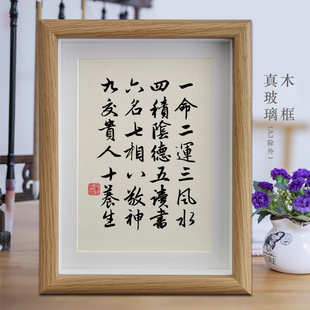 木框
真玻璃
(A3除外)
一命二運三風水
四積陰德五讀書
六名七相八敬神
九交貴人十養生